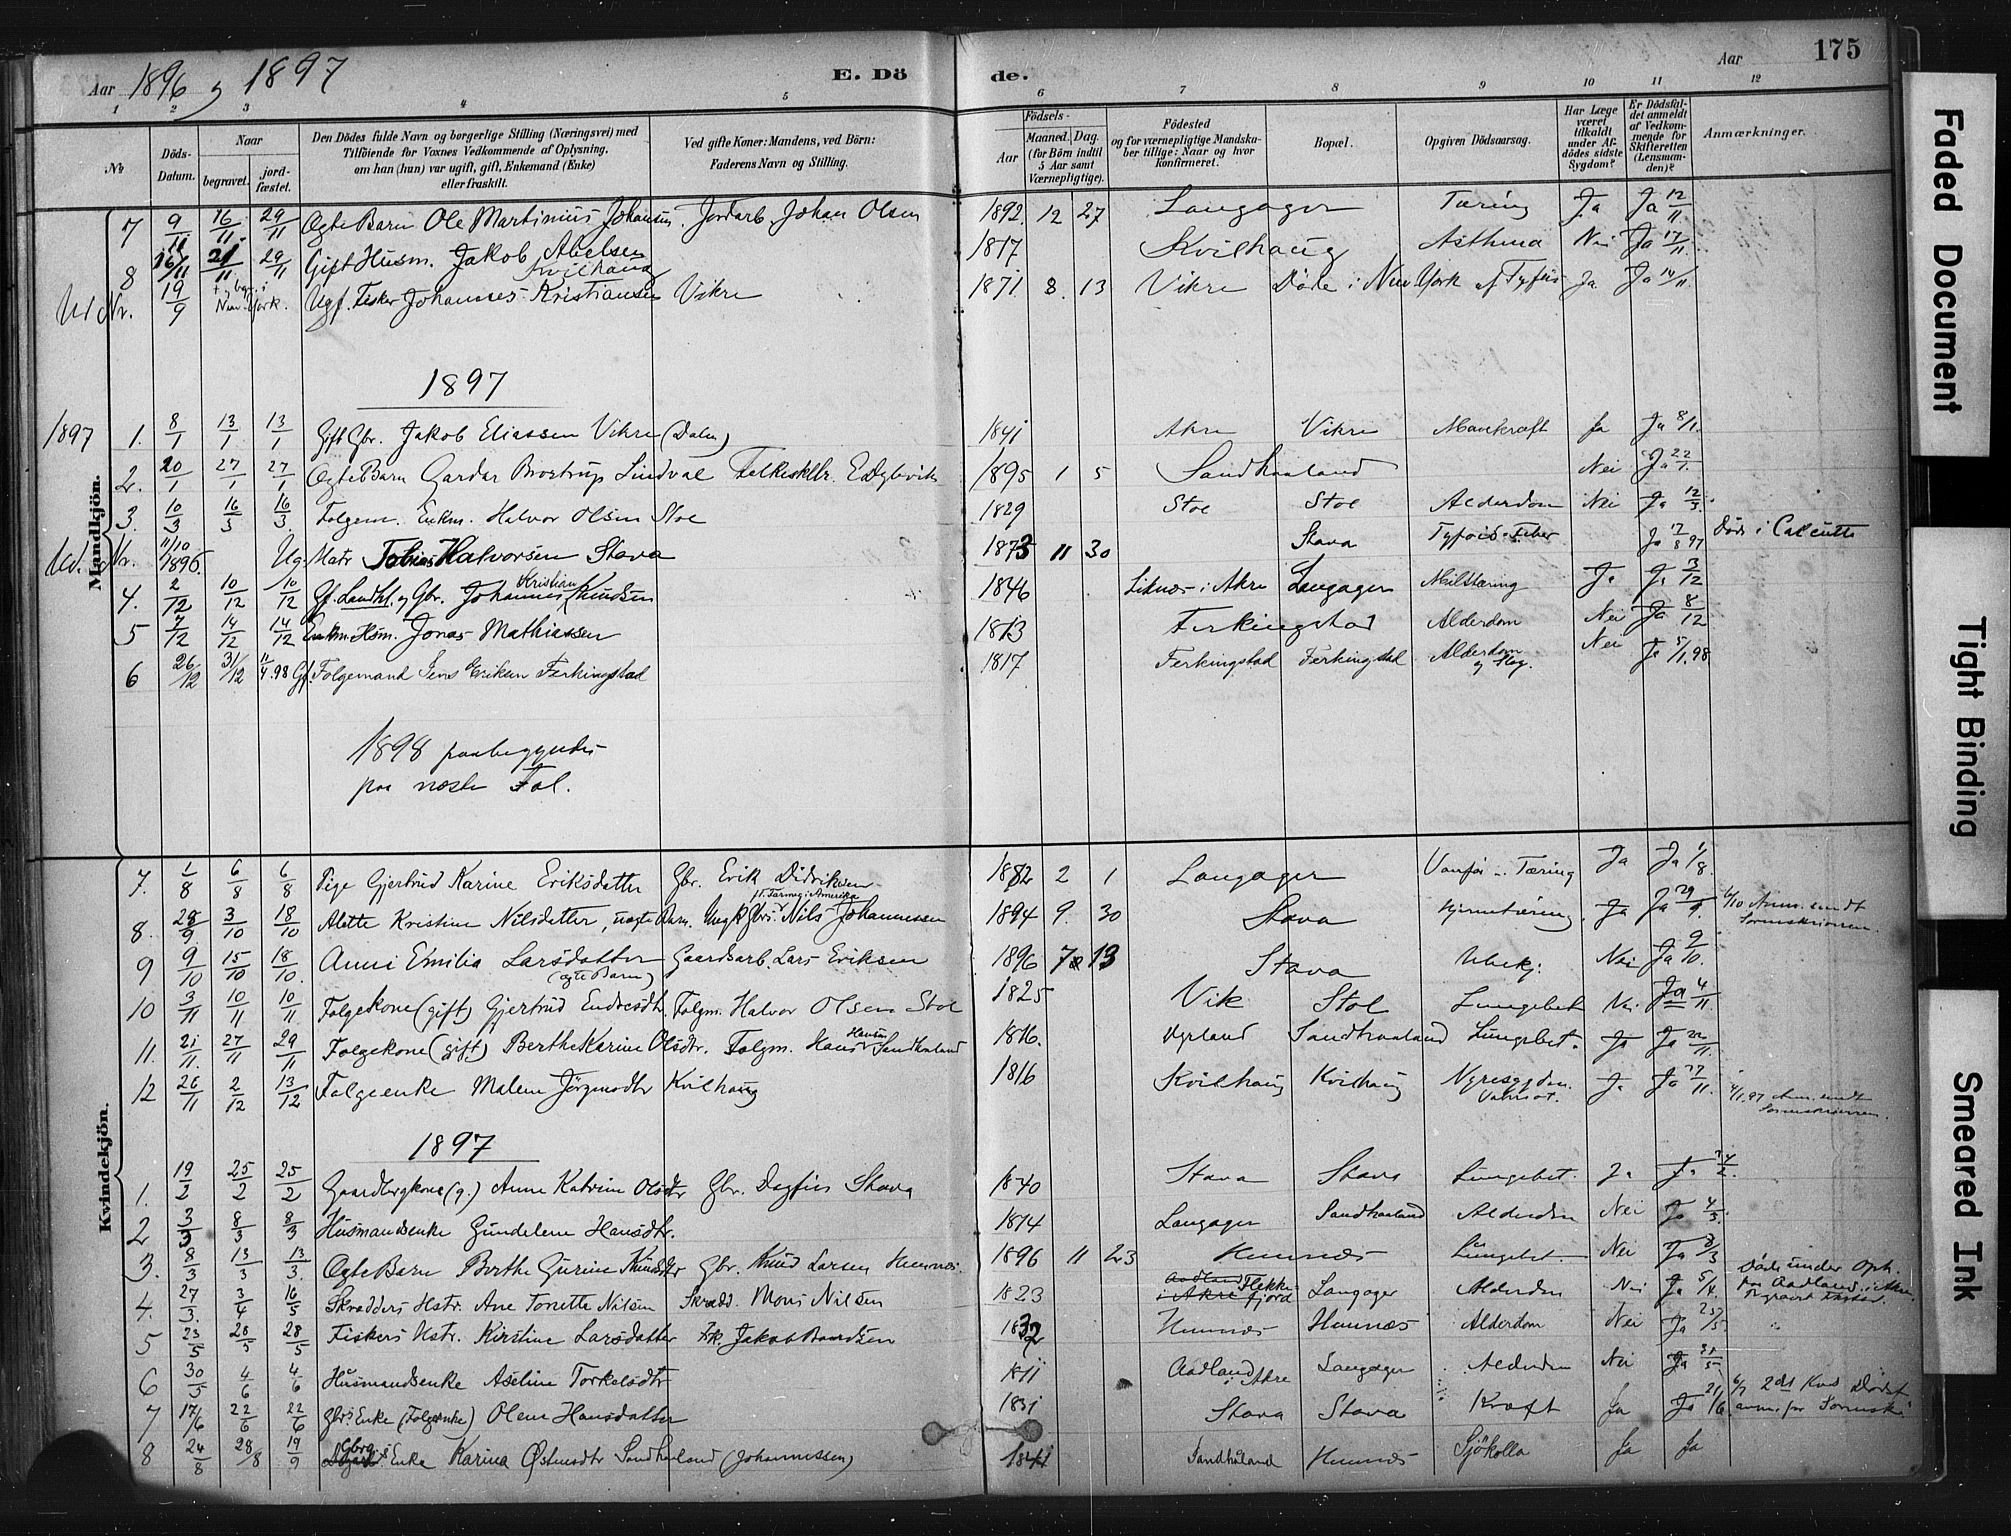 Aar 1896 og 1897 E. Dö de. Aar 175
1 2 3 4 5 6 7 8 9 10 11 12
No Döds-Datum. Naar begravet. jordfæstet. Den Dödes fulde Navn og borgerlige Stilling (Næringsvei) med Tilföiende for Voxnes Vedkommende af Oplysning, om han (hun) var ugift, gift, Enkemand (Enke) eller fraskilt. Ved gifte Koner: Mandens, ved Börn: Faderens Navn og Stilling. Födsels- Aar Maaned. Dag. (for Börn indtil 5 Aar samt Værnepligtige). Födested og for værnepligtige Mandskaber tillige: Naar og hvor Konfirmeret. Bopæl. Opgiven Dödsaarsag. Har Læge været tilkaldt under Afdödes sidste Sygdom? Er Dödsfaldet anmeldt af Vedkommende for Skifteretten (Lensmanden)? Anmærkninger.
Mandkjön.
7 9/11 16/11 29/11 Ægte Barn Ole Martinius Johansen Jordarb. Johan Olsen 1892 12 27 Langager Tæring Ja Ja 12/11.
8 16/11 21/11 29/11 Gift Husm. Jakob Abelsen Kvilhaug 1817 Kvilhaug Asthma Nei Ja 17/11.
Ud Nr. 19/9 New-York. Ugf. Fisker Johannes Kristiansen Vikre 1871 8. 13 Vikre Döde i New York af Tyfus Ja Ja 14/11
1897
1897 1. 8/1 13/1 13/1 Gift Gbr. Jakob Eliassen Vikre (Dalen) 1841 Akre Vikre Mavekræft Ja Ja 8/1.
2. 20/1 27/1 27/1 Ægte Barn Gardar Brostrup Lindval 1895 1 5 Sandhaaland Nei Ja 22/1.
3. 10/3 16/3 16/3. Folgem. Enkm. Halvor Olsen Stol 1829 Stol Stol Alderdom Nei Ja 12/3.
Ud. Nr. 11/10 1896. Ug. Matr Tobias Halvorsen Stava 1873 11 30 Stava Tyfoid-Feber Ja 17/8 97 Död i Calcutta
4. 2/12 10/12 10/12 Gf. Landhl. og Gbr. Johannes Kristian Knudsen 1846 Liknes i Akre Langager Milttæring Ja Ja 3/12
5 7/12 14/12 14/12 Enkm. Hsm. Jonas Mathiassen 1813 Ferkingstad Alderdom Nei Ja 8/12
6 26/12 31/12 11/4.98 Gf. Folgemand Jens Eriksen Ferkingstad 1817 Ferkingstad Ferkingstad Alderdom Nei Ja 5/1.98
1898 paabegyndes
paa næste Fol.
Kvindekjön.
7. 1/8 6/8 6/8 Pige Gjertrud Karine Eriksdatter Gbr. Erik Didriksen 1882 2 1 Langager Tæring Ja Ja 1/8.
8. 28/9. 3/10 18/10 Alette Kristine Nilsdatter, uægte Barn. Nils Johannessen 1894 9. 30 Stava Hjernetæring. Ja Ja 29/9. 6/10 Anm. sendt Sorenskriveren.
9 9/10 15/10 18/10. Anne Emilia Larsdatter (ægte Barn) Gaardsarb. Lars Eriksen 1896 7 13 Stava Ubekj. Nei Ja 9/10.
10 3/11 10/11 10/11 Folgekone (gift) Gjertrud Endresdtr. Folgm. Halvor Olsen Stol 1825 Vik Stol Lungebet. Nei Ja 4/11.
11. 21/11. 27/11 29/11 Folgekone (gift) Berthe Karine Olsdtr. Folgm. Hans Hansen Sandhaaland 1816. Sandhaaland Lungebet. Ja Ja 22/11.
12 26/11 2/12 13/12 Folgeenke Malene Jörgensdtr Kvilhaug 1816 Kvilhaug Kvilhaug Nyresygdom. Vatersot. Ja Ja 27/11. 4/1.97 Anm. sendt Sorenskriveren.
1897
1. 19/2 25/2 25/2 Gaardbrgkone (g.) Anne Katrine Olsdtr Gbr. Dagfin Stava 1840 Stava Stava Lungebet. Ja Ja 24/2.
2 3/3 8/3 8/3 Husmandsenke Gundelene Hansdtr. 1814 Langager Sandhaaland Alderdom Nei Ja 4/3.
3. 8/3 13/3 13/3. Ægte Barn Berthe Gurine Knudsdtr Gbr. Knud Larsen Hemnes. 1896 11 23 Hemnes Lungebet. Nei Ja 8/3
4. 27/3. 3/4 16/5 Skrædders Hstr. Ane Tonette Nilsen Skrædd. Mons Nilsen 1823 Aadland i Akre Flekkefjord Langager Alderdom Nei Ja 5/4. Döde under Oph. paa Aadland i Akre.
5 23/5 28/5 28/5 Fiskers Hstr. Kirstine Larsdatter Fsk. Jakob Baardsen 1832 Hemnes Hemnes Alderdom Nei Ja 25/5.
6 30/5 4/6 4/6 Husmandsenke Aseline Torkelsdtr 1811 Aadland i Akre Langager Alderdom Nei Ja 31/5
7 17/6 22/6 22/6 Gbrs. Enke (Folgeenke) Olene Hansdatter 1831 Stava Stava Kræft Ja Ja 21/6
8 24/8 28/8 19/9 Gbrg.s Enke Karina Östensdtr Sandhaaland (Johannessen) 1841 Sandhåland Hemnes Ja Ja
Faded Document
Tight Binding
Smeared Ink